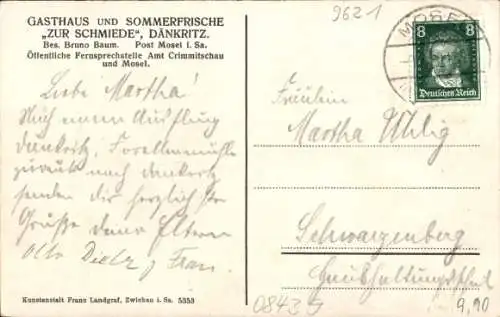 GASTHAUS UND SOMMERFRISCHE
„ZUR SCHMIEDE", DÄNKRITZ.
Bes. Bruno Baum. Post Mosel i. Sa.
Öffentliche Fernsprechstelle Amt Crimmitschau
und Mosel.
Liebe Martha!
Nach einem Ausflug
Dänkritz, Forellenmühle
zurück nach Dänkritz
senden dir herzlichste
Grüße deine Eltern
Otto Dietz u. Frau.
Kunstanstalt Franz Landgraf, Zwickau i. Sa. 5353
9621
MOSEL
8 8
Deutsches Reich
Fräulein
Martha Uhlig
Schwarzenberg
Haushaltungsschule
08439
9,90